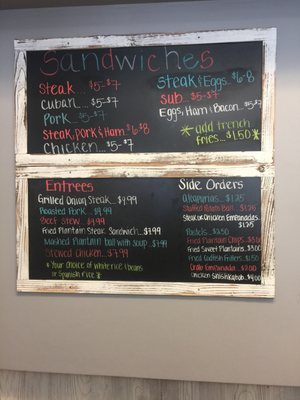 Sandwiches
Steak.... $5-$7
Cuban.... $5-$7
Pork.... $5-$7
Steak, Pork & Ham $6-$8
Chicken.... $5-$7
Steak & Eggs.. $6-8
Sub.... $5-$7
Eggs, Ham & Bacon.. $5-$7
*add french
fries... $1.50*
Entrees
Grilled Onion Steak.... $9.99
Roasted Pork.. $9.99
Beef Stew.. $9.99
Fried Plantain Steak Sandwich.. $9.99
Mashed Plantain ball with soup.. $9.99
Stewed Chicken.. $7.99
* Your choice of white rice & beans
or Spanish rice *
Side Orders
Alcapurrias.. $1.25
Stuffed Potato Ball.. $1.25
Steak or Chicken Empanadas..
$1.25
Pastels.. $2.50
Fried Plantain Chips.. $3.00
Fried Sweet Plantains.. $3.00
Fried Codfish Fritters.. $1.50
Crab Empanada.. $2.00
Chicken Shishkabob.. $4.00